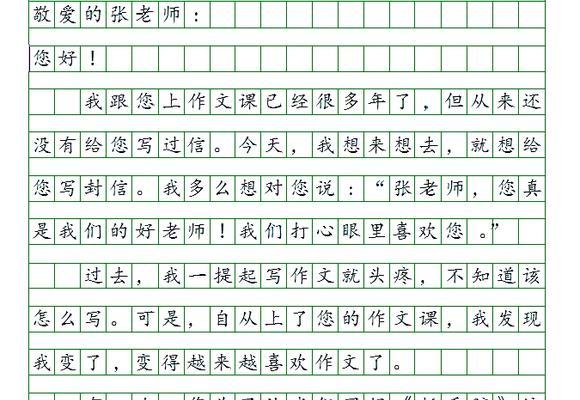 敬爱的张老师：
您好！
我跟您上作文课已经很多年了，但从来还
没有给您写过信。今天，我想来想去，就想给
您写封信。我多么想对您说：“张老师，您真
是我们的好老师！我们打心眼里喜欢您。”
过去，我一提起写作文就头疼，不知道该
怎么写。可是，自从上了您的作文课，我发现
我变了，变得越来越喜欢作文了。